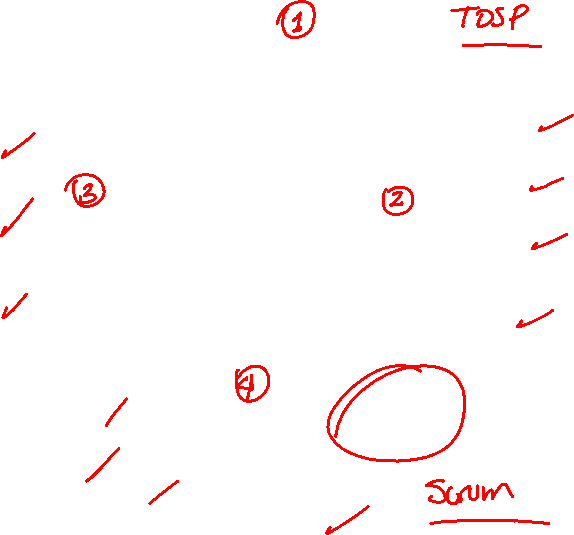 1 TDSP
3 2
4
Scrum